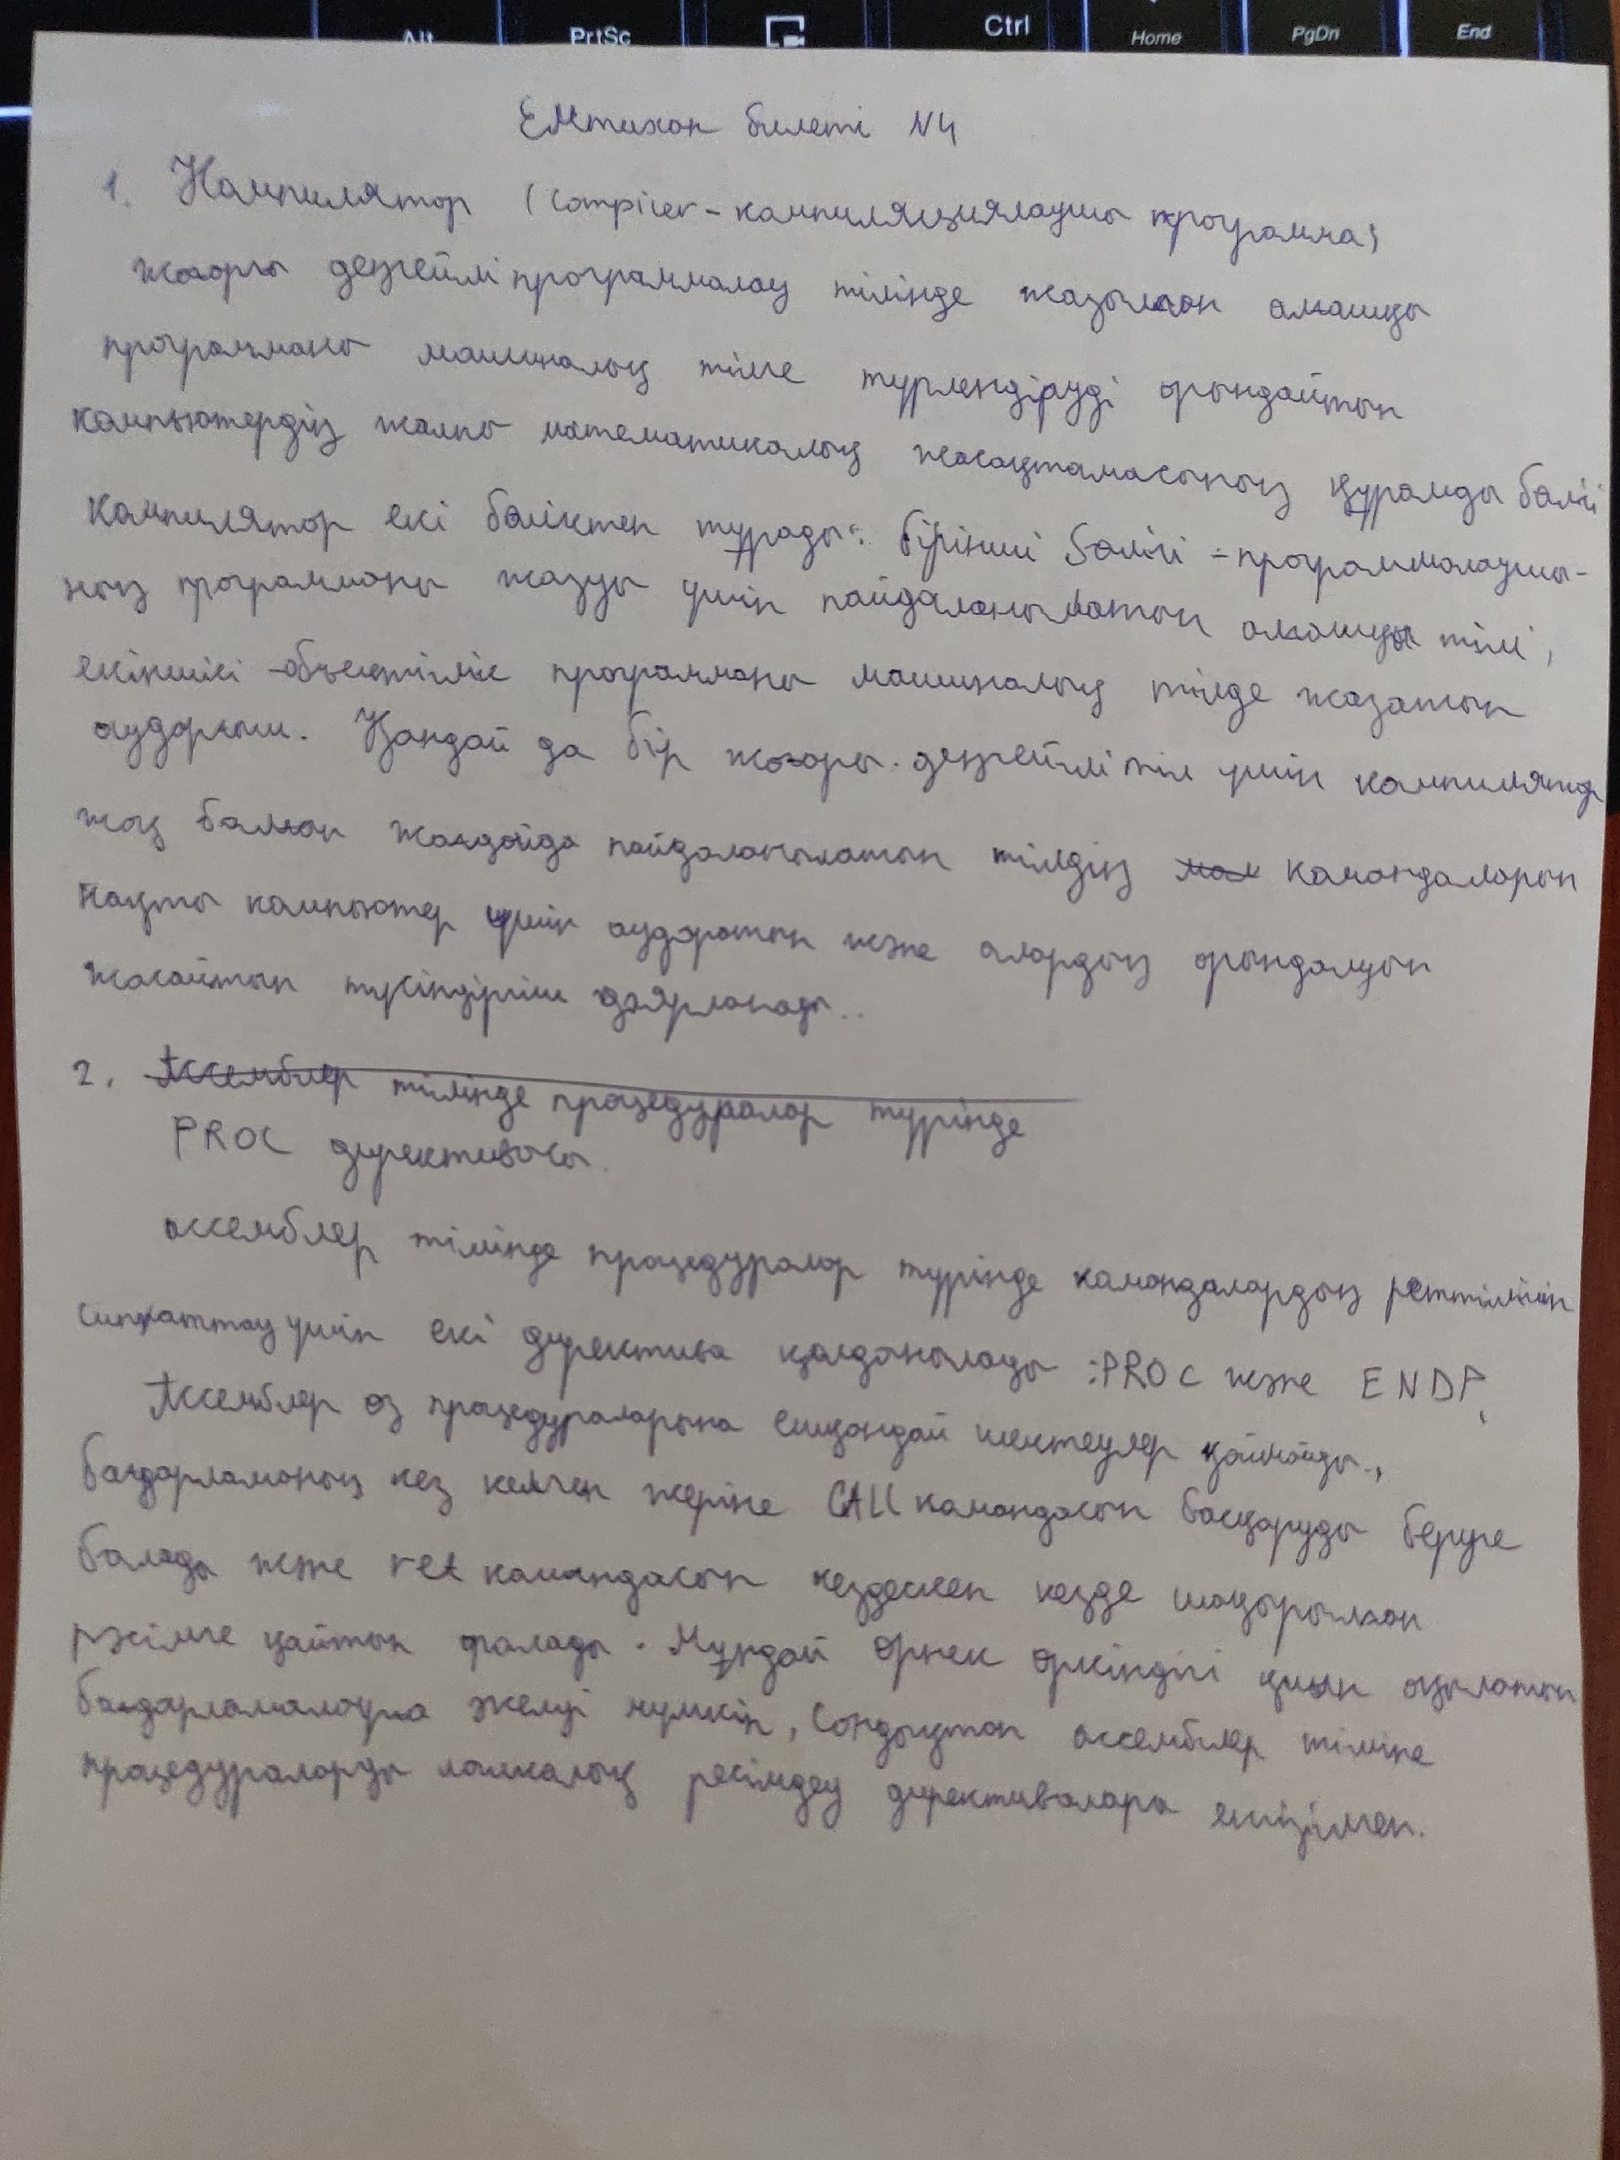 Alt PrtSc Ctrl Home PgDn End
Емтихан билеті N4
1. Компилятор (compiler - компиляциялаушы программа;
жоғары деңгейлі программалау тілінде жазылған алғашқы
программаны машиналық тілге түрлендіруді орындайтын
компьютердің жалпы математикалық жасақтамасының құрамды бөлігі
Компилятор екі бөліктен тұрады: бірінші бөлігі - программалаушы-
ның программаны жазуы үшін пайдаланылатын алғашқы тілі,
екіншісі - объектілік программаны машиналық тілде жазатын
аударғыш. Қандай да бір жоғары деңгейлі тіл үшін компилятор
жоқ болған жағдайда пайдаланылатын тілдің командаларын
нақты компьютер үшін аударатын және олардың орындалуын
жасайтын түсіндіргіш даярланады..
2. Ассемблер тілінде процедуралар түрінде
PROC директивасы.
Ассемблер тілінде процедуралар түрінде командалардың реттілігін
сипаттау үшін екі директива қолданылады: PROC және ENDP,
Ассемблер өз процедураларына ешқандай шектеулер қоймайды.,
бағдарламаның кез келген жеріне CALL командасын басқаруды беруге
болады және ret командасын кездескен кезде шақырылған
рәсімге қайтып оралады. Мұндай өрнек еркіндігі қиын оқылатын
бағдарламалауға әкелуі мүмкін, сондықтан ассемблер тіліне
процедураларды логикалық ресімдеу директивалары енгізілген.